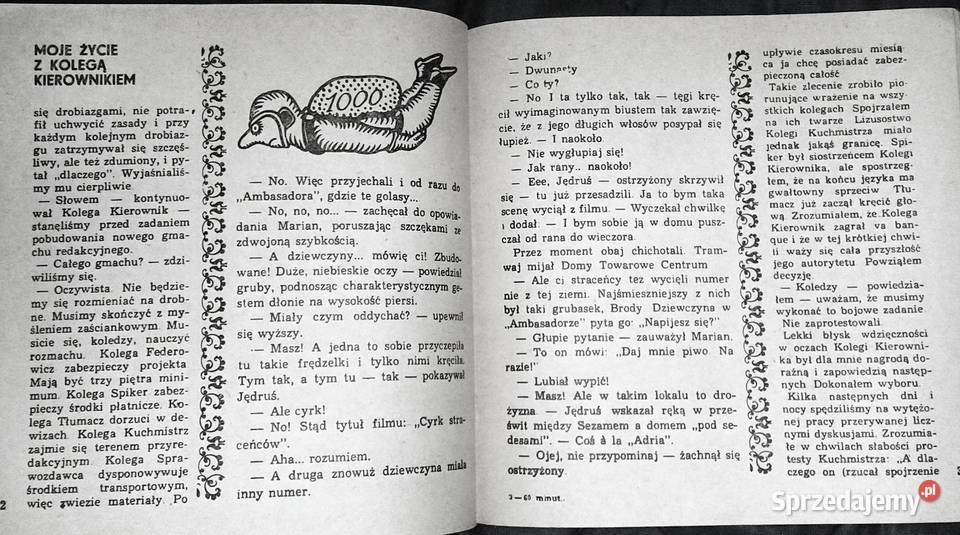 MOJE ŻYCIE
Z KOLEGĄ
KIEROWNIKIEM
się drobiazgami, nie potra-
fił uchwycić zasady i przy
każdym kolejnym drobiaz-
gu zatrzymywał się szczęś-
liwy, ale też zdumiony, i py-
tał „dlaczego". Wyjaśnialiś-
my mu cierpliwie
— Słowem — kontynuo-
wał Kolega Kierownik —
stanęliśmy przed zadaniem
pobudowania nowego gma-
chu redakcyjnego.
— Całego gmachu? — zdzi-
wiliśmy się.
— Oczywista. Nie będzie-
my się rozmieniać na drob-
ne. Musimy skończyć z my-
śleniem zaściankowym. Mu-
sicie się, koledzy, nauczyć
rozmachu. Kolega Federo-
wicz zabezpieczy projekta
Mają być trzy piętra mini-
mum. Kolega Spiker zabez-
pieczy środki płatnicze. Ko-
lega Tłumacz dorzuci w de-
wizach. Kolega Kuchmistrz
zajmie się terenem przyre-
dakcyjnym. Kolega Spra-
wozdawca dysponowywuje
środkiem transportowym,
więc zwiezie materiały. Po
2
1000
— No. Więc przyjechali i od razu do
„Ambasadora", gdzie te golasy...
— No, no, no... — zachęcał do opowia-
dania Marian, poruszając szczękami ze
zdwojoną szybkością.
— A dziewczyny... mówię ci! Zbudo-
wane! Duże, niebieskie oczy — powiedział
gruby, podnosząc charakterystycznym ge-
stem dłonie na wysokość piersi.
— Miały czym oddychać? — upewnił
się wyższy.
— Masz! A jedna to sobie przyczepiła
tu takie frędzelki i tylko nimi kręciła.
Tym tak, a tym tu — tak — pokazywał
Jędruś.
— Ale cyrk!
— No! Stąd tytuł filmu: „Cyrk stra-
ceńców".
— Aha... rozumiem.
— A druga znowuż dziewczyna miała
inny numer.
— Jaki?
— Dwunasty
— Co ty?
— No I ta tylko tak, tak — tęgi krę-
cił wyimaginowanym biustem tak zawzię-
cie, że z jego długich włosów posypał się
łupież. — I naokoło.
— Nie wygłupiaj się!
— Jak rany.. naokoło!
— Eee, Jędruś — ostrzyżony skrzywił
się — tu już przesadzili. Ja to bym taka
scenę wyciął z filmu. — Wyczekał chwilkę
i dodał: — I bym sobie ją w domu pusz-
czał od rana do wieczora.
Przez moment obaj chichotali. Tram-
waj mijał Domy Towarowe Centrum
— Ale ci straceńcy tez wycięli numer
nie z tej ziemi. Najśmieszniejszy z nich
był taki grubasek, Brody Dziewczyna w
„Ambasadorze" pyta go: „Napijesz się?"
— Głupie pytanie — zauważył Marian.
— To on mówi: „Daj mnie piwo Na
razie!"
— Lubiał wypić!
— Masz! Ale w takim lokalu to dro-
żyzna — Jędruś wskazał ręką w prze-
świt między Sezamem a domem „pod se-
desami". — Coś à la „Adria".
— Ojej, nie przypominaj — żachnął się
ostrzyżony.
3 — 60 minut.
upływie czasokresu miesią
ca ja chcę posiadać zabez-
pieczoną całość
Takie zlecenie zrobiło pio-
runujące wrażenie na wszy-
stkich kolegach Spojrzałem
na ich twarze Lizusostwo
Kolegi Kuchmistrza miało
jednak jakąś granicę. Spi-
ker był siostrzeńcem Kolegi
Kierownika, ale spostrzeg-
łem, że na końcu języka ma
gwałtowny sprzeciw Tłu-
macz już zaczął kręcić gło-
wą. Zrozumiałem, że Kolega
Kierownik zagrał va ban-
que i że w tej krótkiej chwi-
li waży się cała przyszłość
jego autorytetu Powziąłem
decyzję.
— Koledzy — powiedzia-
łem — uważam, że musimy
wykonać to bojowe zadanie
Nie zaprotestowali.
Lekki błysk wdzięczności
w oczach Kolegi Kierowni-
ka był dla mnie nagrodą do-
raźną i zapowiedzią następ-
nych. Dokonałem wyboru.
Kilka następnych dni i
nocy spędziliśmy na wytężo-
nej pracy przerywanej licz-
nymi dyskusjami. Zrozumia-
łe w chwilach słabości pro-
testy Kuchmistrza: „A dla-
czego on (rzucał spojrzenie
Sprzedajemy.pl